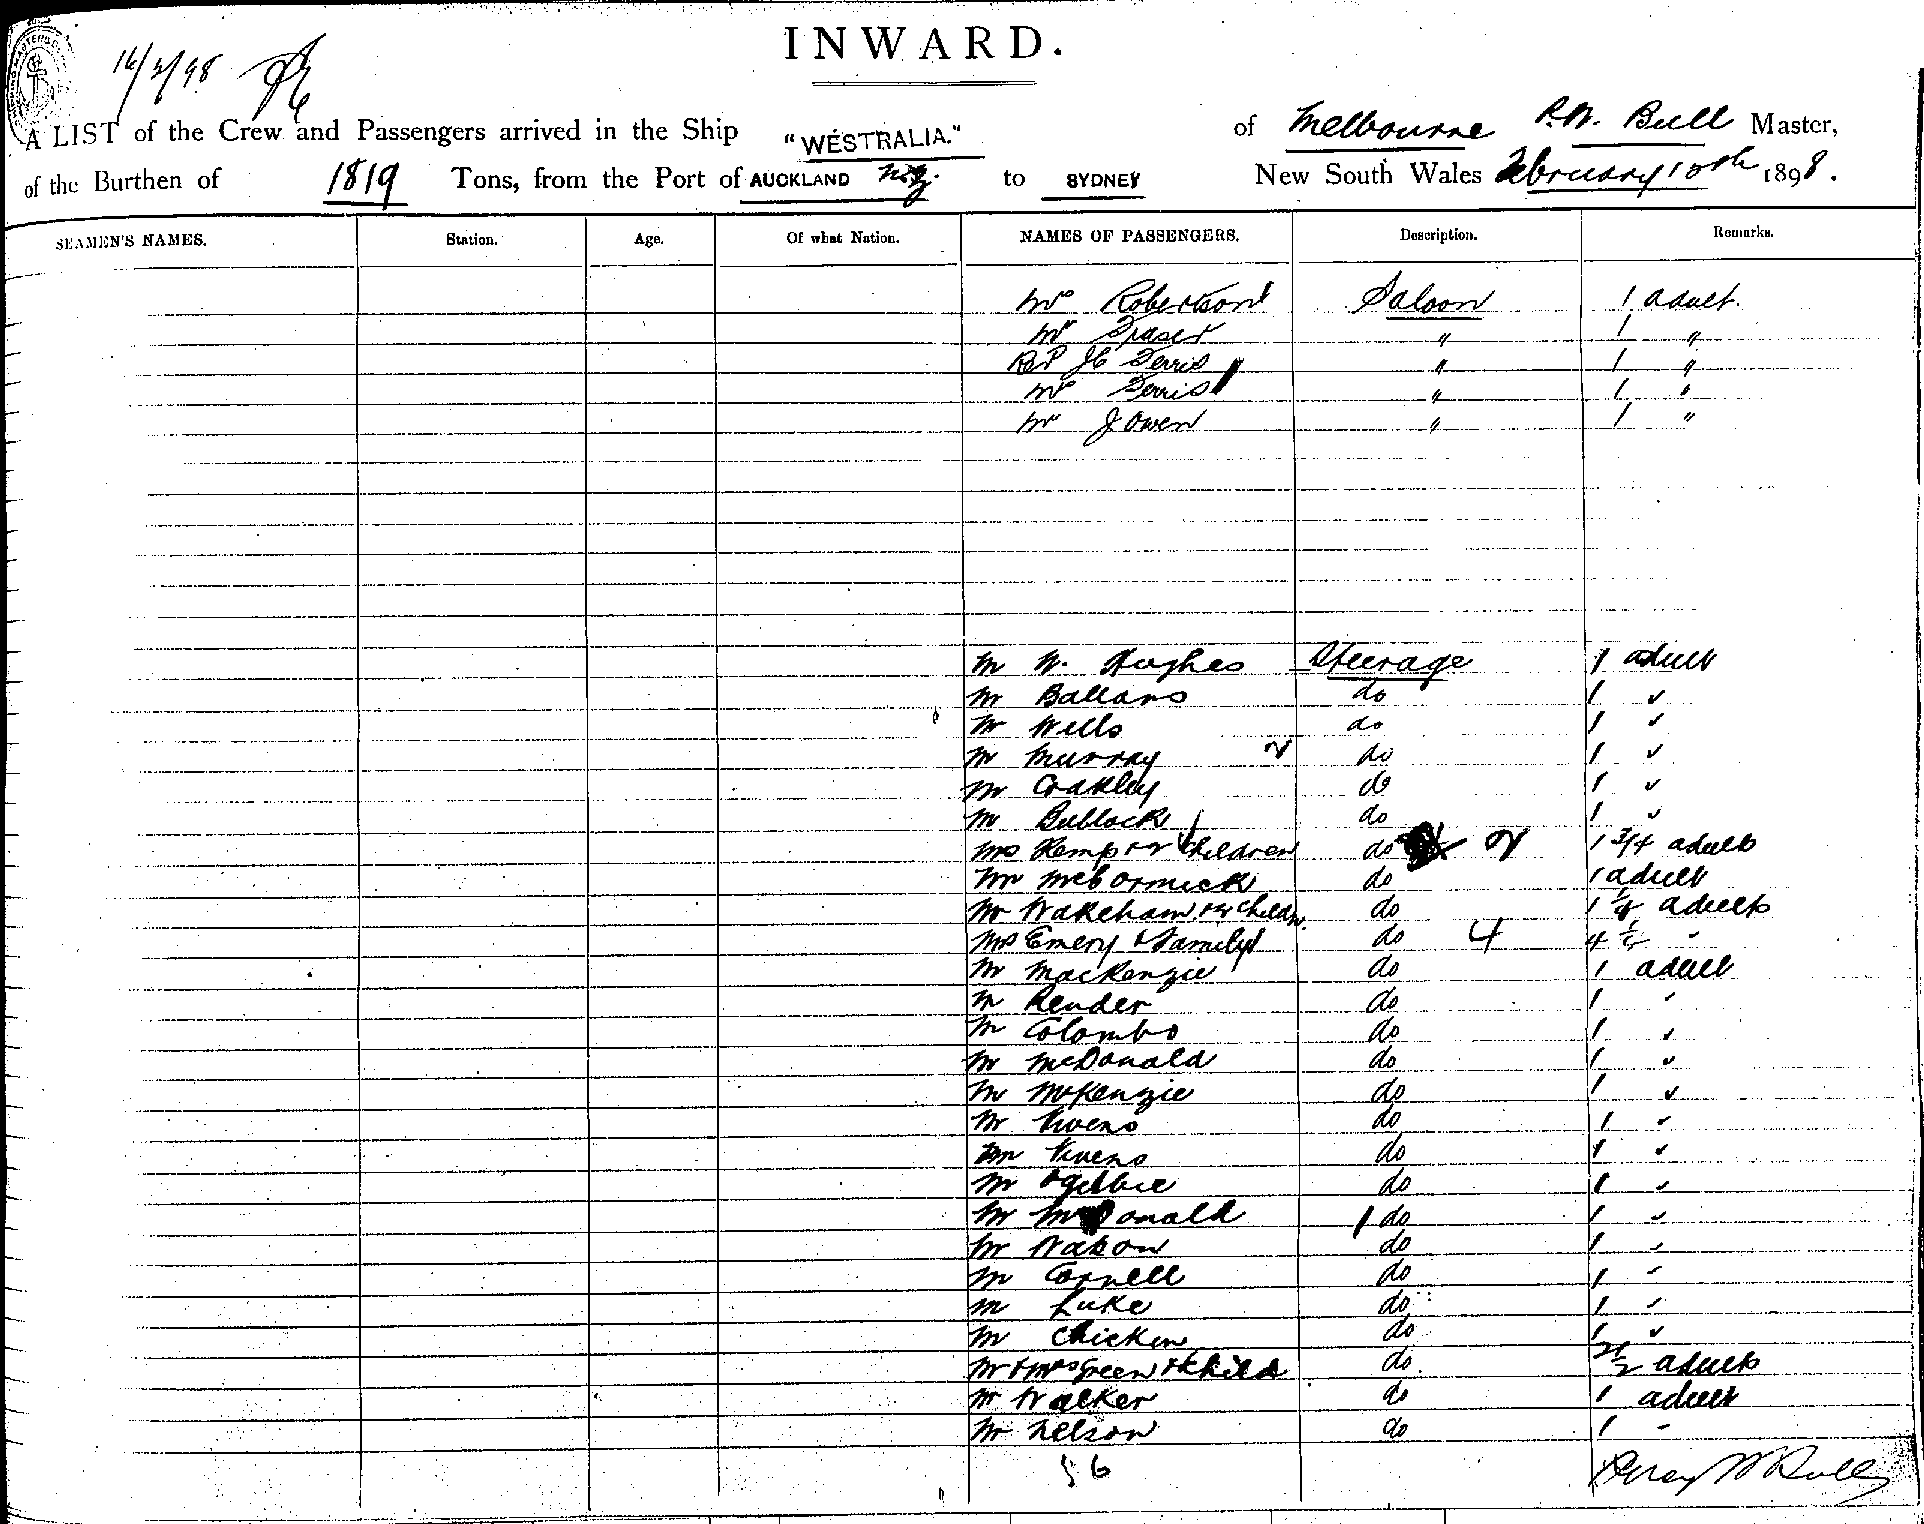 INWARD.
16/2/98
A LIST of the Crew and Passengers arrived in the Ship "WESTRALIA." of Melbourne P.W. Bull Master,
of the Burthen of 1819 Tons, from the Port of AUCKLAND N.Z. to SYDNEY New South Wales February 10th 1898.
SEAMEN'S NAMES. Station. Age. Of what Nation. NAMES OF PASSENGERS. Description. Remarks.
Mrs Robertson Saloon 1 adult.
Mr Fraser " 1 "
Revd JG Ferris " 1 "
Mrs Ferris " 1 "
Mr J Owen " 1 "
Mr W. Hughes Steerage 1 adult
Mr Ballans do 1 "
Mr Wells do 1 "
Mr Murray do 1 "
Mr Coakley do 1 "
Mr Bullock do 1 "
Mrs Kemp + 2 children do 2 1 3/4 adults
Mr McCormick do 1 adult
Mr Wakeham + childn. do 1 1/4 adults
Mrs Emery + Family do 4 4 1/2 "
Mr MacKenzie do 1 adult
Mr Render do 1 "
Mr Colombo do 1 "
Mr McDonald do 1 "
Mr McKenzie do 1 "
Mr Vivens do 1 "
Mr Vivens do 1 "
Mr Ogilbie do 1 "
Mr McDonald 1 do 1 "
Mr do 1 "
Mr Cornell do 1 "
Mr Luke do 1 "
Mr Chicken do 1 "
Mr + Mrs Green + child do. 2 1/2 adults
Mr Walker do 1 adult
Mr Nelson do 1 "
56 Percy W Bull